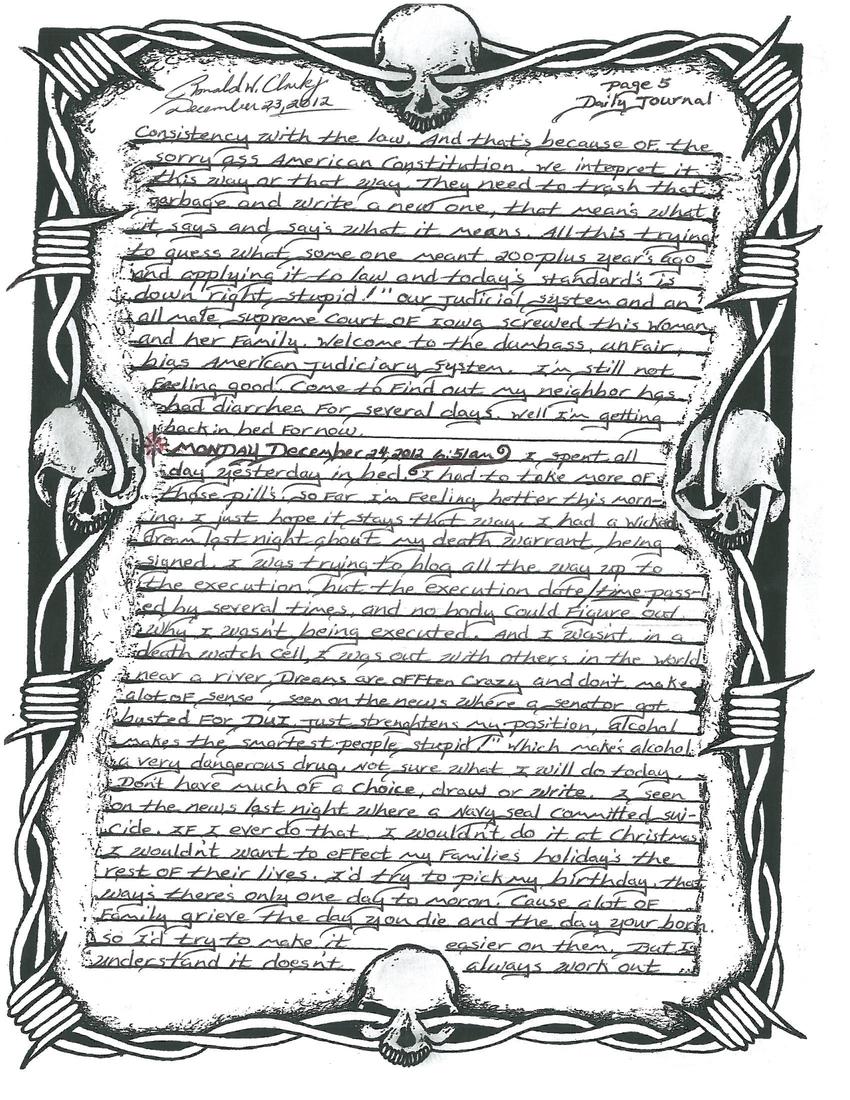 Ronald W. Clark jr
December 23, 2012
page 5
Daily Journal
Consistency with the law. And that's because of the
sorry ass American Constitution. we intepret it
this way or that way. They need to trash that
garbage and write a new one, that mean's what
it says and say's what it means. All this trying
to guess what some one meant 200 plus year's ago
and applying it to law and today's standard's is
down right, stupid!" our judicial system and an
all male supreme Court of Iowa screwed this woman
and her Family. Welcome to the dumbass, unFair,
bias American judiciary System. I'm still not
Feeling good. Come to Find out my neighbor has
had diarrhea For several days. Well I'm getting
back in bed For now.
MONDAY December 24, 2012 6:51am I spent all
day yesterday in bed. I had to take more of
those pills. so Far I'm Feeling better this morn-
ing. I just hope it stays that way. I had a wicked
dream last night about my death warrant being
signed. I was trying to blog all the way up to
the execution, but the execution date/time pass-
ed by several times, and no body Could Figure out
why I wasn't being executed. And I wasn't in a
death watch cell, I was out with others in the world
near a river. Dreams are offten Crazy and don't make
alot of sense seen on the news where a senator got
busted For DUI, just strenghtens my position, alcohol
makes the smartest people, stupid!" Which make's alcohol
a very dangerous drug. Not sure what I will do today.
Don't have much of a choice, draw or write. I seen
on the news last night where a Navy seal Committed sui-
cide. IF I ever do that, I wouldn't do it at Christmas
I wouldn't want to effect my Families holiday's the
rest of their lives. I'd try to pick my birthday, that
way's there's only one day to moron. Cause alot of
Family grieve the day you die and the day your born.
so I'd try to make it easier on them. But I
understand it doesn't always work out